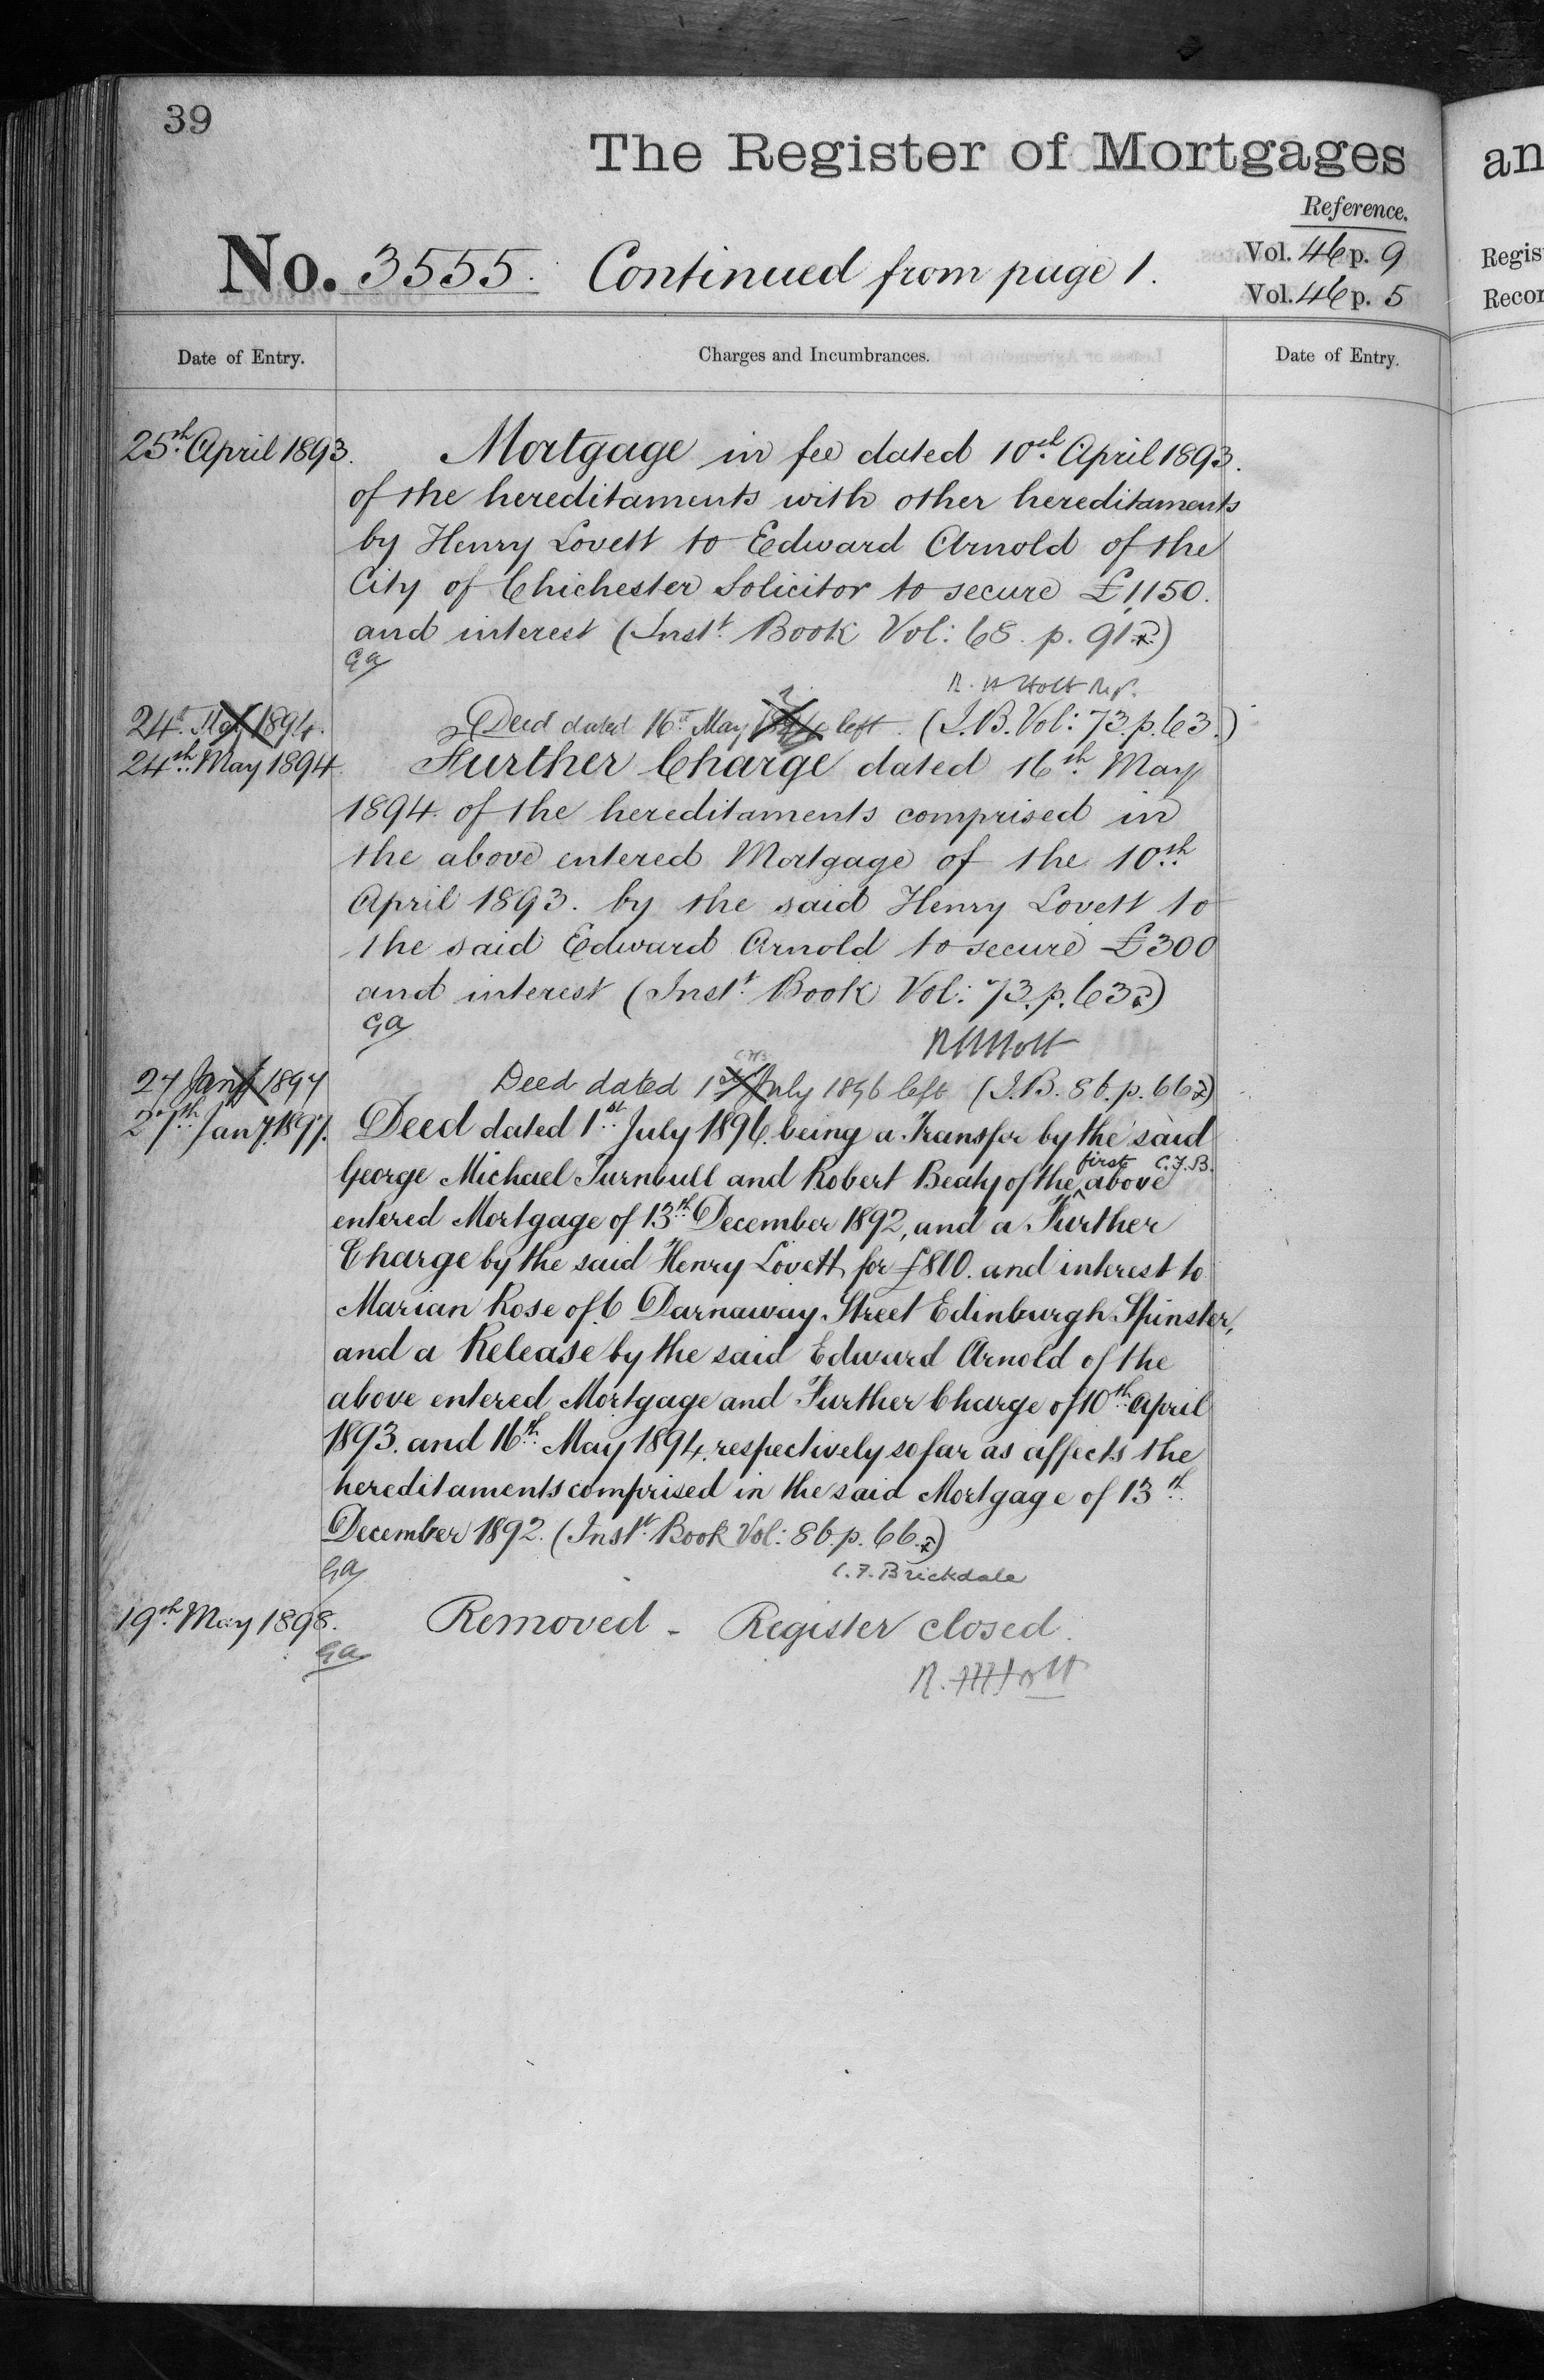 39
The Register of Mortgages
Reference.
No. 3555. Continued from page 1.
Vol. 46 p. 9
Vol. 46 p. 5
Date of Entry.
Charges and Incumbrances.
Date of Entry.
25th April 1893.
Mortgage in fee dated 10th April 1893.
of the hereditaments with other hereditaments
by Henry Lovett to Edward Arnold of the
City of Chichester Solicitor to secure £1,150.
and interest (Inst. Book Vol: 68. p. 91.)
GA
R. H Holt Reg.
24th May 1894.
Deed dated 16th May left. (I.B. Vol: 73. p. 63.)
24th May 1894.
Further Charge dated 16th May
1894. of the hereditaments comprised in
the above entered Mortgage of the 10th
April 1893. by the said Henry Lovett to
the said Edward Arnold to secure £300
and interest (Inst. Book Vol: 73. p. 63)
GA
RHHolt
27 Jany 1897
Deed dated 1st July 1896 left (I.B. 86. p. 66)
27th Jany. 1897.
Deed dated 1st July 1896. being a Transfer by the said
George Michael Turnbull and Robert Beaty of the first above C.F.B.
entered Mortgage of 13th December 1892, and a Further
Charge by the said Henry Lovett for £800. and interest to
Marian Rose of 6 Darnaway Street Edinburgh Spinster,
and a Release by the said Edward Arnold of the
above entered Mortgage and Further Charge of 10th April
1893. and 16th May 1894. respectively so far as affects the
hereditaments comprised in the said Mortgage of 13th
December 1892. (Inst. Book Vol: 86. p. 66.)
GA
C.F. Brickdale
19th May 1898.
Removed - Register closed.
GA
R. HHolt
an
Regis
Recor